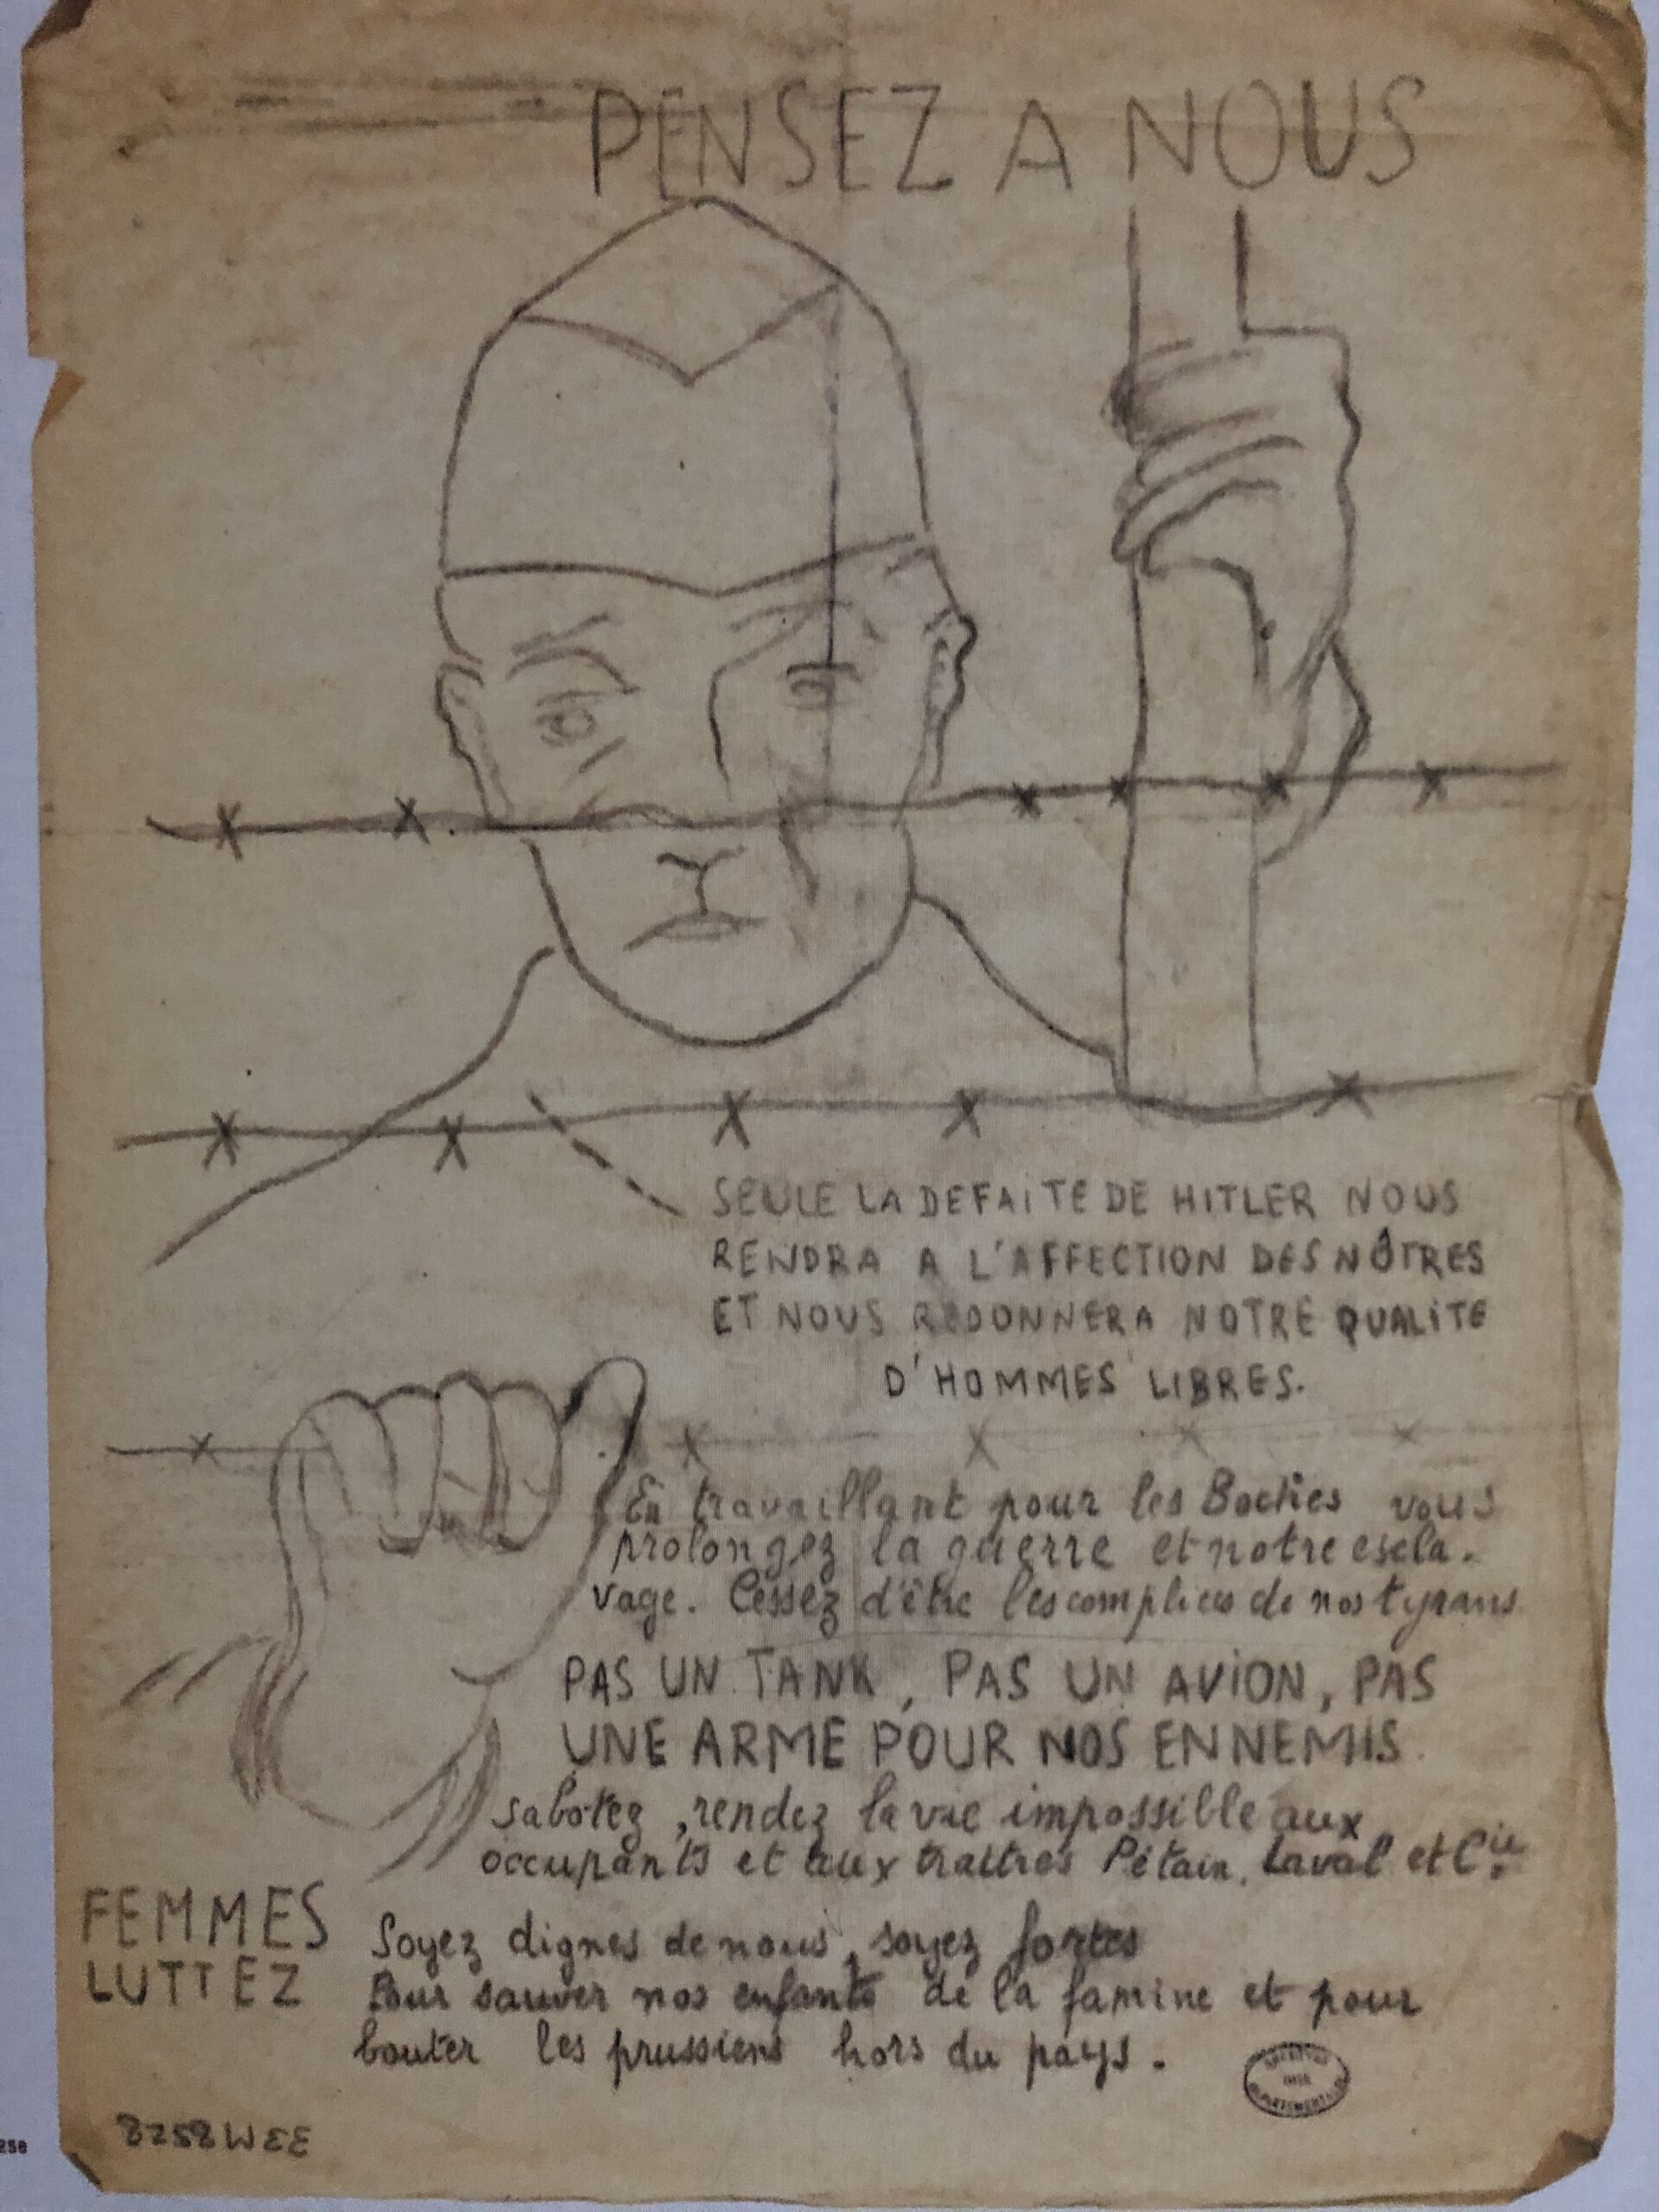 PENSEZ A NOUS
SEULE LA DEFAITE DE HITLER NOUS
RENDRA A L'AFFECTION DES NÔTRES
ET NOUS REDONNERA NOTRE QUALITE
D'HOMMES LIBRES.
En travaillant pour les Boches vous
prolongez la guerre et notre escla-
vage. Cessez d'être les complices de nos tyrans
PAS UN TANK, PAS UN AVION, PAS
UNE ARME POUR NOS ENNEMIS
Sabotez, rendez la vie impossible aux
occupants et aux traitres Pétain, Laval et Cie.
FEMMES
LUTTEZ
Soyez dignes de nous, soyez fortes
Pour sauver nos enfants de la famine et pour
bouter les prussiens hors du pays.
ARCHIVES
OISE
DEPARTEMENTALES
258